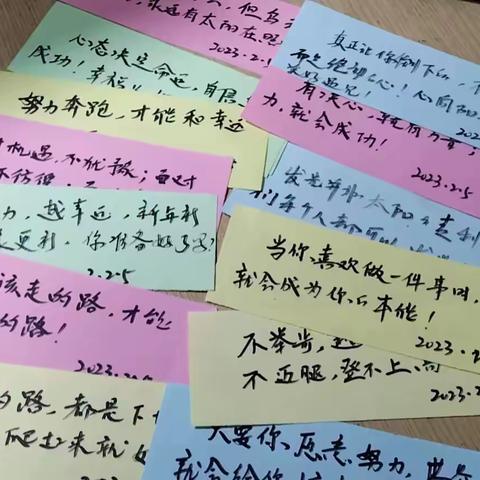 永远有太阳在照
2023.2.5
心态决定命运,自信
成功!幸福
努力奔跑,才能和幸运
机遇,不犹豫;面对
力,越幸运,新年新
更新,你准备好了吗?
2.2.5
该走的路,才能
的路!
2023.2.
路,都是下
爬起来就
真正让你倒下的,不
而是绝望的心!心向阳
有决心,就有力量;
力,就会成功!
2023.2.5
发光并非太阳的专利
们每个人都可以
当你喜欢做一件事时,
就会成为你的本能!
2023.2.
不举步,越
不迈腿,登不上高
2023.2
只要你愿意努力,世界
就会给你